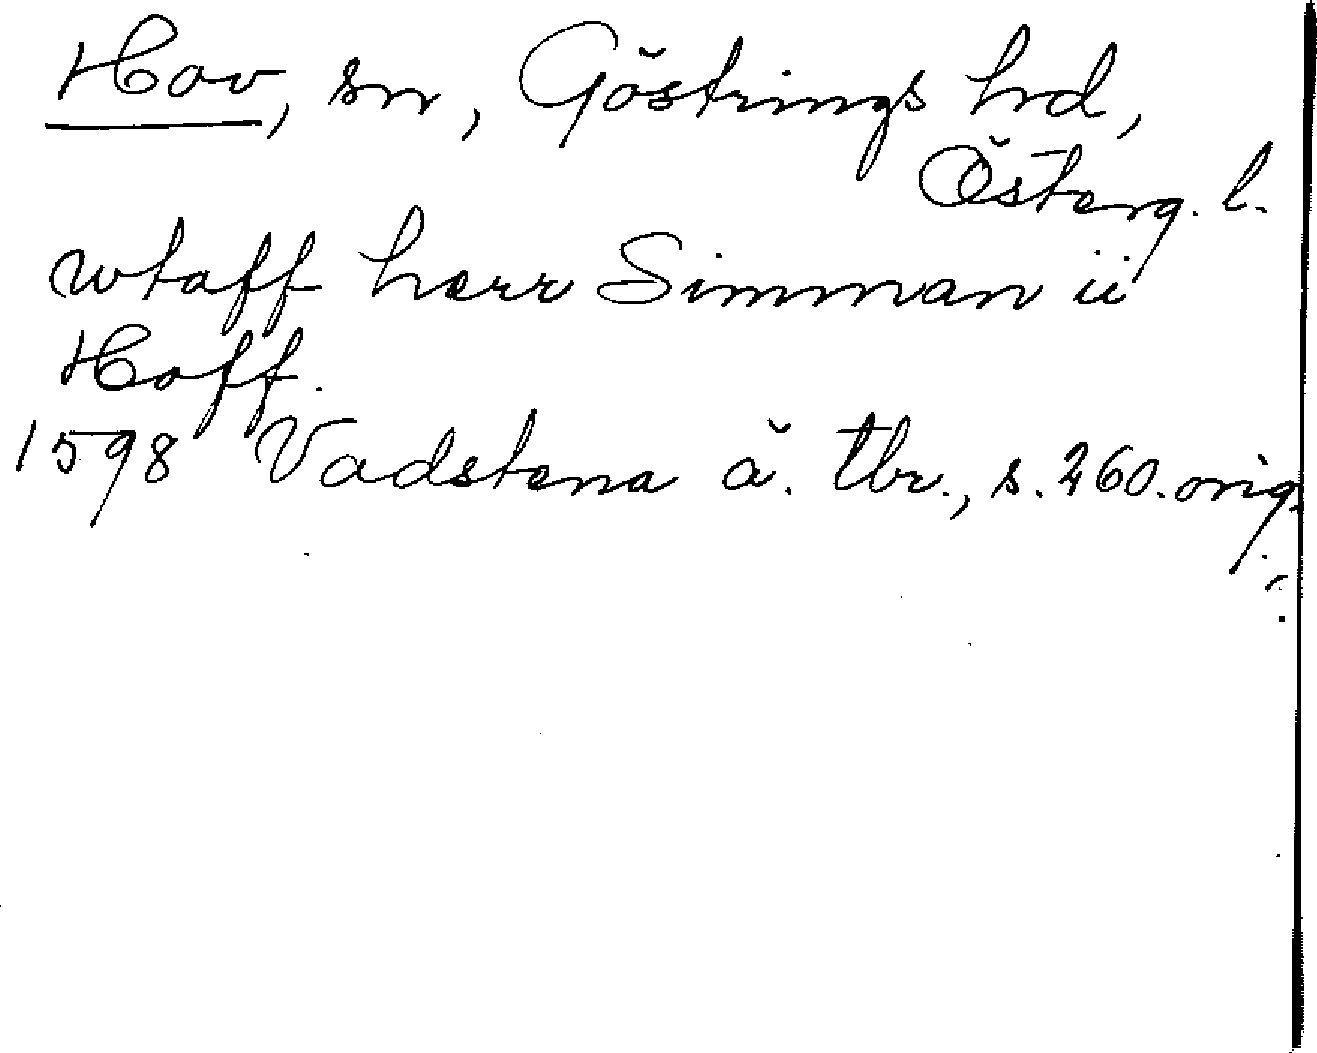 Hov, sn, Göstrings hd,
Österg. l.
wtaff herr Simman ii
Hoff.
1598 Vadstena ä. tbr., s. 260. orig.